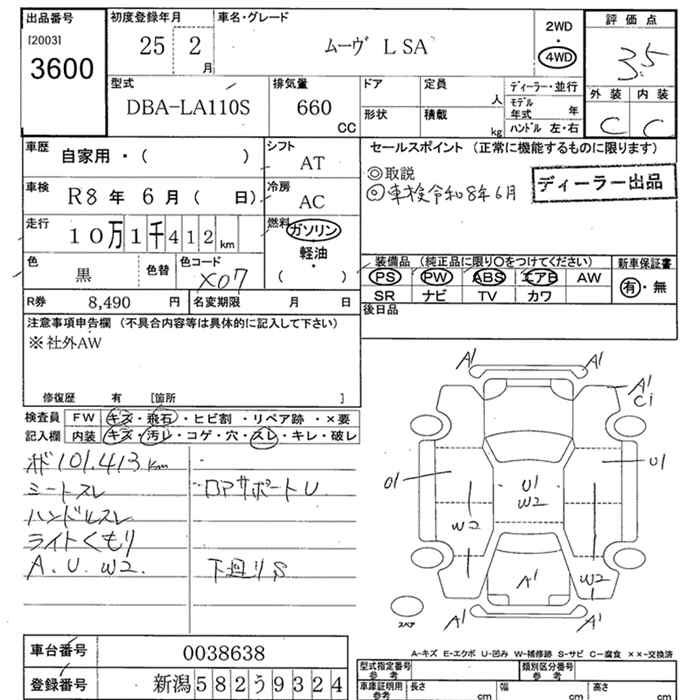 出品番号
[2003]
3600
初度登録年月
25 2
月
車名・グレード
ムーヴ L SA
2WD
・
4WD
評価点
3.5
外装 内装
C C
型式
DBA-LA110S
排気量
660
CC
ドア
形状
定員
人
積載
kg
ディーラー・並行
モデル年式 年
ハンドル 左・右
車歴
自家用・( )
シフト
AT
車検
R8年6月( 日)
冷房
AC
走行
10万1千412km
燃料
ガソリン
軽油
・
( )
色
黒
色替
色コード
X07
R券 8,490 円
名変期限 月 日
セールスポイント (正常に機能するものに限ります)
◎取説
◎車検令和8年6月
ディーラー出品
装備品 (純正品に限り○をつけてください)
PS PW ABS エアB AW
SR ナビ TV カワ
新車保証書
有・無
後日品
注意事項申告欄 (不具合内容等は具体的に記入して下さい)
※社外AW
修復歴 有 [箇所 ]
検査員
記入欄
FW キズ・飛石・ヒビ割・リペア跡・×要
内装 キズ・汚レ・コゲ・穴・スレ・キレ・破レ
101.413km
シートスレ
ハンドルスレ
ライトくもり
A.U.W2.
ロアサポートU
下廻りS
A1 A1
A1
C1
U1 U1
U1
W2
W2
W2
A1
A1 A1
スペア
A-キズ E-エクボ U-凹み W-補修跡 S-サビ C-腐食 ××-交換済
車台番号 0038638
登録番号 新潟582う9324
型式指定番号
参考
類別区分番号
参考
車庫証明用
参考
長さ cm
幅 cm
高さ cm